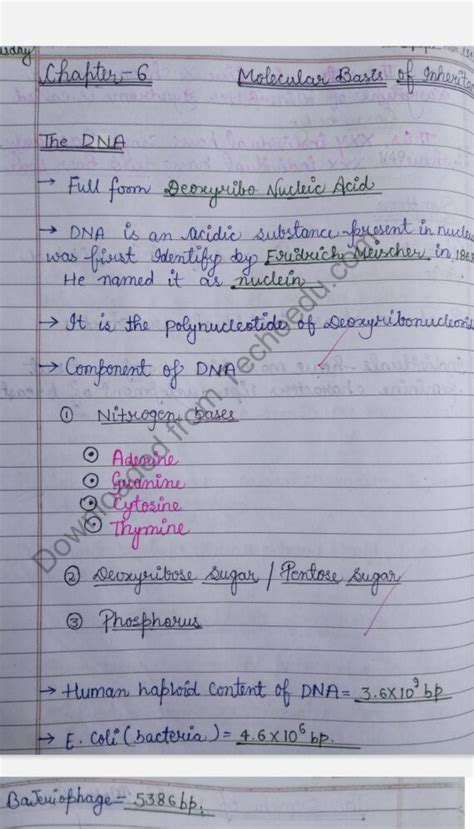 Chapter-6 Molecular Basis of Inherita
The DNA
→ Full form Deoxyribo Nucleic Acid
→ DNA is an acidic substance present in nucleu
was first Identify by Friedrich Meischer in 186
He named it as nuclein
→ It is the polynucleotide of Deoxyribonucleoti
→ Component of DNA
① Nitrogen bases
Adenine
Guanine
Cytosine
Thymine
② Deoxyribose Sugar / Pentose Sugar
③ Phosphorus
→ Human haploid content of DNA = 3.6×10⁹ bp
→ E. coli (bacteria) = 4.6×10⁶ bp.
Bacteriophage = 5386 bp.
Downloaded from Techoedu.com